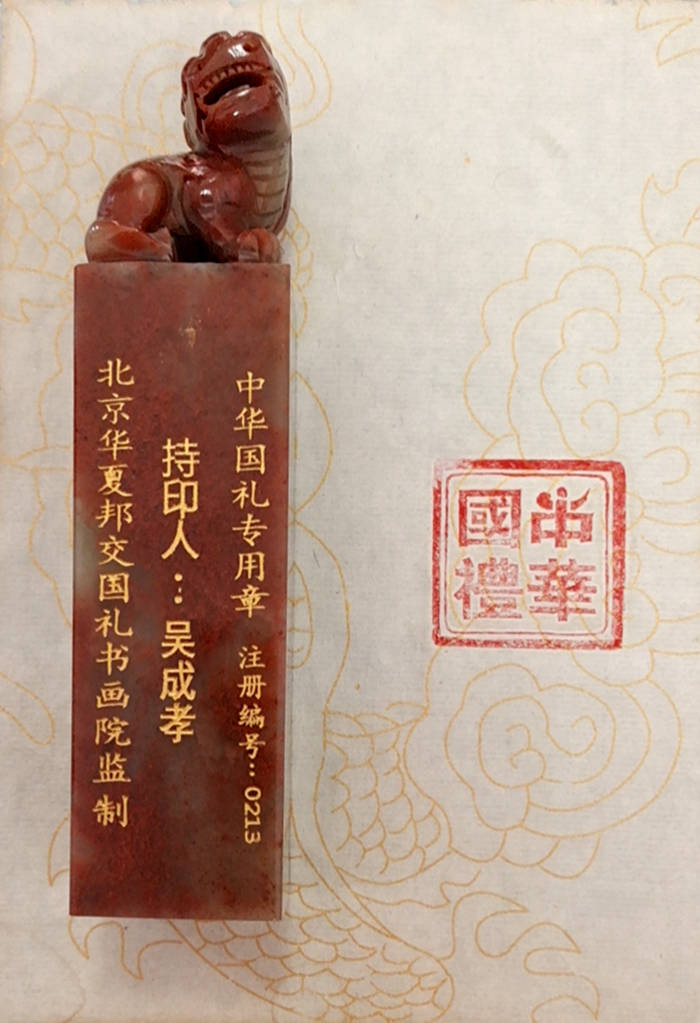 中华国礼专用章 注册编号：0213
持印人：吴成孝
北京华夏邦交国礼书画院监制
中華
國禮